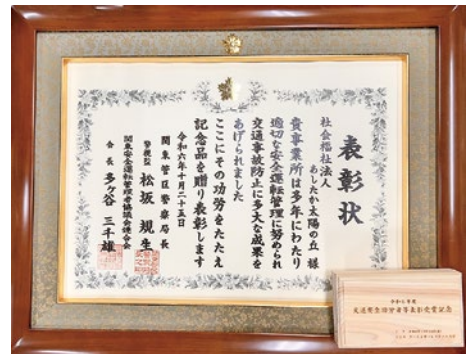 表彰状
社会福祉法人
あしたか太陽の丘 様
貴事業所は多年にわたり
適切な安全運転管理に努められ
交通事故防止に多大な成果を
あげられました
ここにその功労をたたえ
記念品を贈り表彰します
令和六年十月二十五日
関東管区警察局長
警視監 松坂 規生
関東安全運転管理者協議会連合会
会長 多ケ谷 三千雄
交通安全功労者等表彰受賞記念